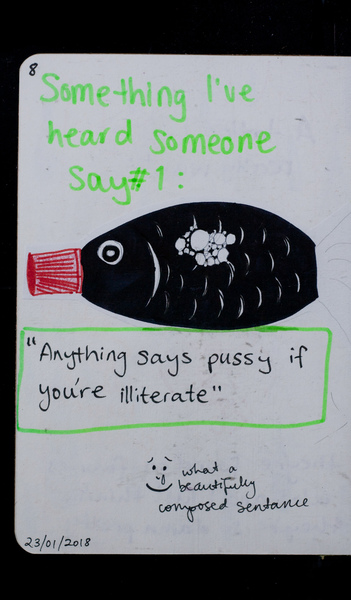 8
Something I've
heard someone
say#1:
"Anything says pussy if
you're illiterate"
what a
beautifully
composed sentance
23/01/2018